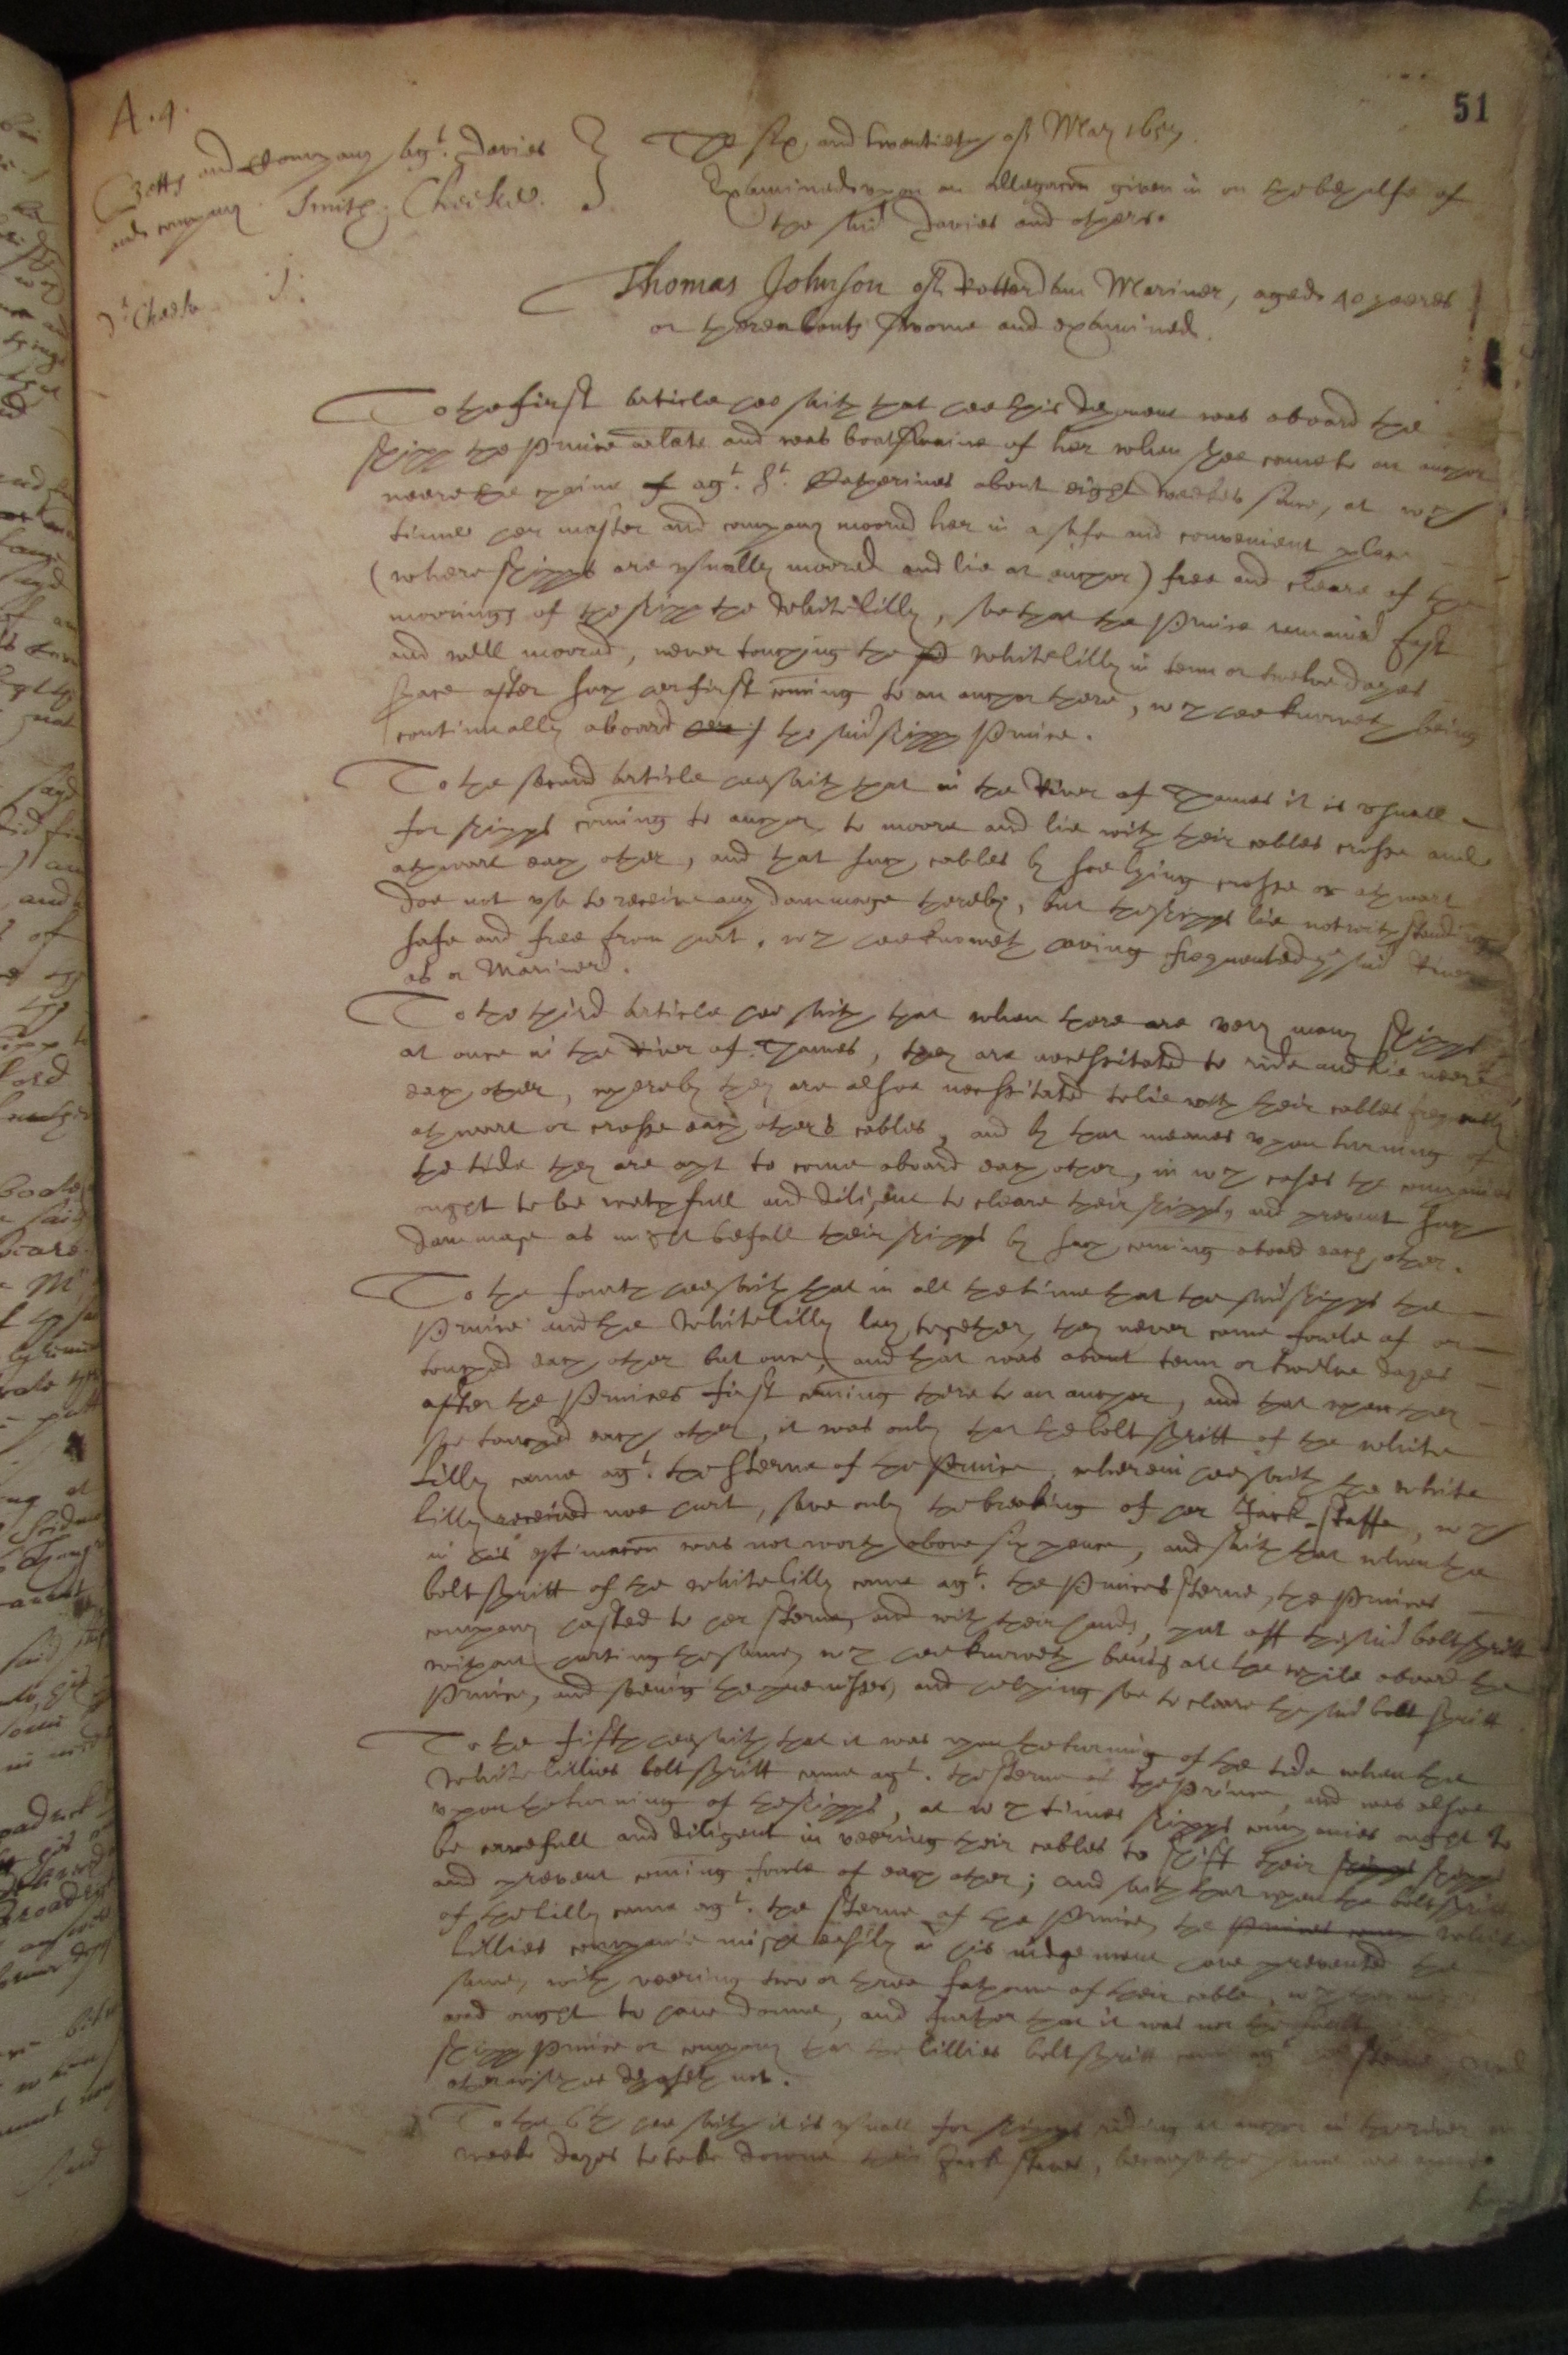 51
A. 4.
Betts and Company agt. Davies
and company. Smith. Cheeke.
The six and twentieth of May 1657.
Examined upon an allegacon given in on the behalfe of
the said Davies and others.
dt. Cheeke
.j.
Thomas Johnson of Rotterdam Mariner, aged 40 yeeres
or thereabouts sworne and examined.
To the first article hee saith that hee this deponent was aboard the
shipp the Prince arlate and was boatswaine of her when shee came to an anchor
neere the chaine of agt. St. Katherines about eight weekes since, at wch
time her master and company moored her in a safe and convenient place
(where shipps are usually moored and lie at anchor) free and cleare of the
moorings of the shipp the White lilly, soe that the Prince remained fast
and well moored, never touching the sd White lilly in tenn or twelve dayes
space after such her first coming to an anchor there, wch hee knoweth being
continually aboard her the said shipp Prince.
To the second article hee saith that in the River of Thames it is usuall
for shipps coming to anchor, to moore and lie with their cables crosse and
athwart each other, and that such cables by soe lying crosse or athwart
doe not use to receive any dammage thereby, but the shipps lie notwithstanding
safe and free from hurt. wch hee knoweth having frequented ye said River
as a Mariner.
To the third article hee saith that when there are very many shipps
at once in the River of Thames, they are necessitated to ride and lie neere
each other, whereby they are alsoe necessitated to lie with their cables frequently
athwart or crosse each others cables, and by that meanes upon turning of
the tide they are apt to come aboard each other, in wch cases the companies
ought to be watchfull and diligent to cleare their shipps, and prevent such
dammage as might befall their shipps by such coming aboard each other.
To the fourth hee saith that in all the time that the said shipps the
Prince and the White lilly lay together, they never came fowle of or
touched each other but once, and that was about tenn or twelve dayes
after the Princes first coming there to an anchor, and that when they
soe touched each other, it was only that the boltspritt of the white
Lilly came agt. the sterne of the Prince, wherein hee saith the white
lilly received noe hurt, save only the breaking of her Jack-staffe, wch
in his estimacon was not worth above six pence, and saith that when the
boltspritt of the White lilly came agt. the Princes sterne, the Princes
company hasted to her sterne and with their hands, put off the said boltspritt
without hurting the same, wch hee knoweth being all the while aboard the
Prince, and seeing the premisses, and helping soe to cleare the said boltspritt
To the fifth hee saith that it was upon the turning of the tide when the
White lillies boltspritt came agt. the sterne of the Prince, and was alsoe
upon the turning of the shipps, at wch times shipps companies ought to
be carefull and diligent in veering their cables to shift their shipps shipps
and prevent coming fowle of each other; and saith that when the boltspritt
of the lilly came agt. the sterne of the Prince, the Princes company White
lillies companie might easily in his judgement have prevented the
same, with veering two or three fathome of their cable, wch they
and ought to have donne, and further that it was not the fault
shipp Prince or company that the lillies boltspritt came agt her sterne, And
otherwise hee deposeth not.
To the 6th hee saith it is usuall for shipps riding at anchor in the river on
weeke dayes to take downe their Jack staves, because the same are